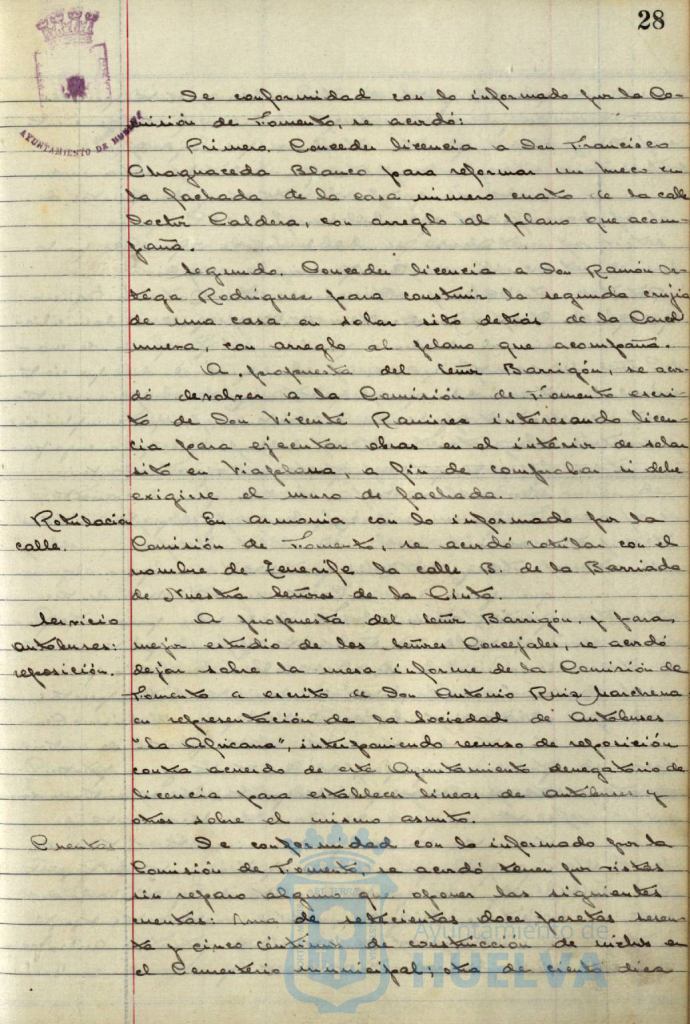 28
AYUNTAMIENTO DE HUELVA
De conformidad con lo informado por la Co-
misión de Fomento, se acordó:
Primero. Conceder licencia a Don Francisco
Chaguaceda Blanco para reformar un hueco en
la fachada de la casa número cuatro de la calle
Doctor Caldera, con arreglo al plano que acom-
paña.
Segundo. Conceder licencia a Don Ramón Or-
tega Rodriguez para construir la segunda crujia
de una casa en solar sito detrás de la Carcel
nueva, con arreglo al plano que acompaña.
A propuesta del Señor Barrigón, se acor-
dó devolver a la Comisión de Fomento escri-
to de Don Vicente Ramirez interesando licen-
cia para ejecutar obras en el interior de solar
sito en Viaplana, a fin de comprobar si debe
exigirse el muro de fachada.
Rotulación
calle.
En armonia con lo informado por la
Comisión de Fomento, se acordó rotular con el
nombre de Tenerife la calle B. de la Barriada
de Nuestra Señora de la Cinta.
Servicio
autobuses:
reposición.
A propuesta del Señor Barrigón, y para
mejor estudio de los Señores Concejales, se acordó
dejar sobre la mesa informe de la Comisión de
Fomento a escrito de Don Antonio Ruiz Marchena
en representación de la Sociedad de Autobuses
"La Africana", interponiendo recurso de reposición
contra acuerdo de este Ayuntamiento denegatorio de
licencia para establecer lineas de autobuses y
otros sobre el mismo asunto.
Cuentas
De conformidad con lo informado por la
Comisión de Fomento, se acordó tener por vistas
sin reparo alguno que oponer las siguientes
cuentas: Una de setecientas doce pesetas sesen-
ta y cinco céntimos de construcción de nichos en
el Cementerio municipal; otra de ciento diez
Ayuntamiento de
HUELVA